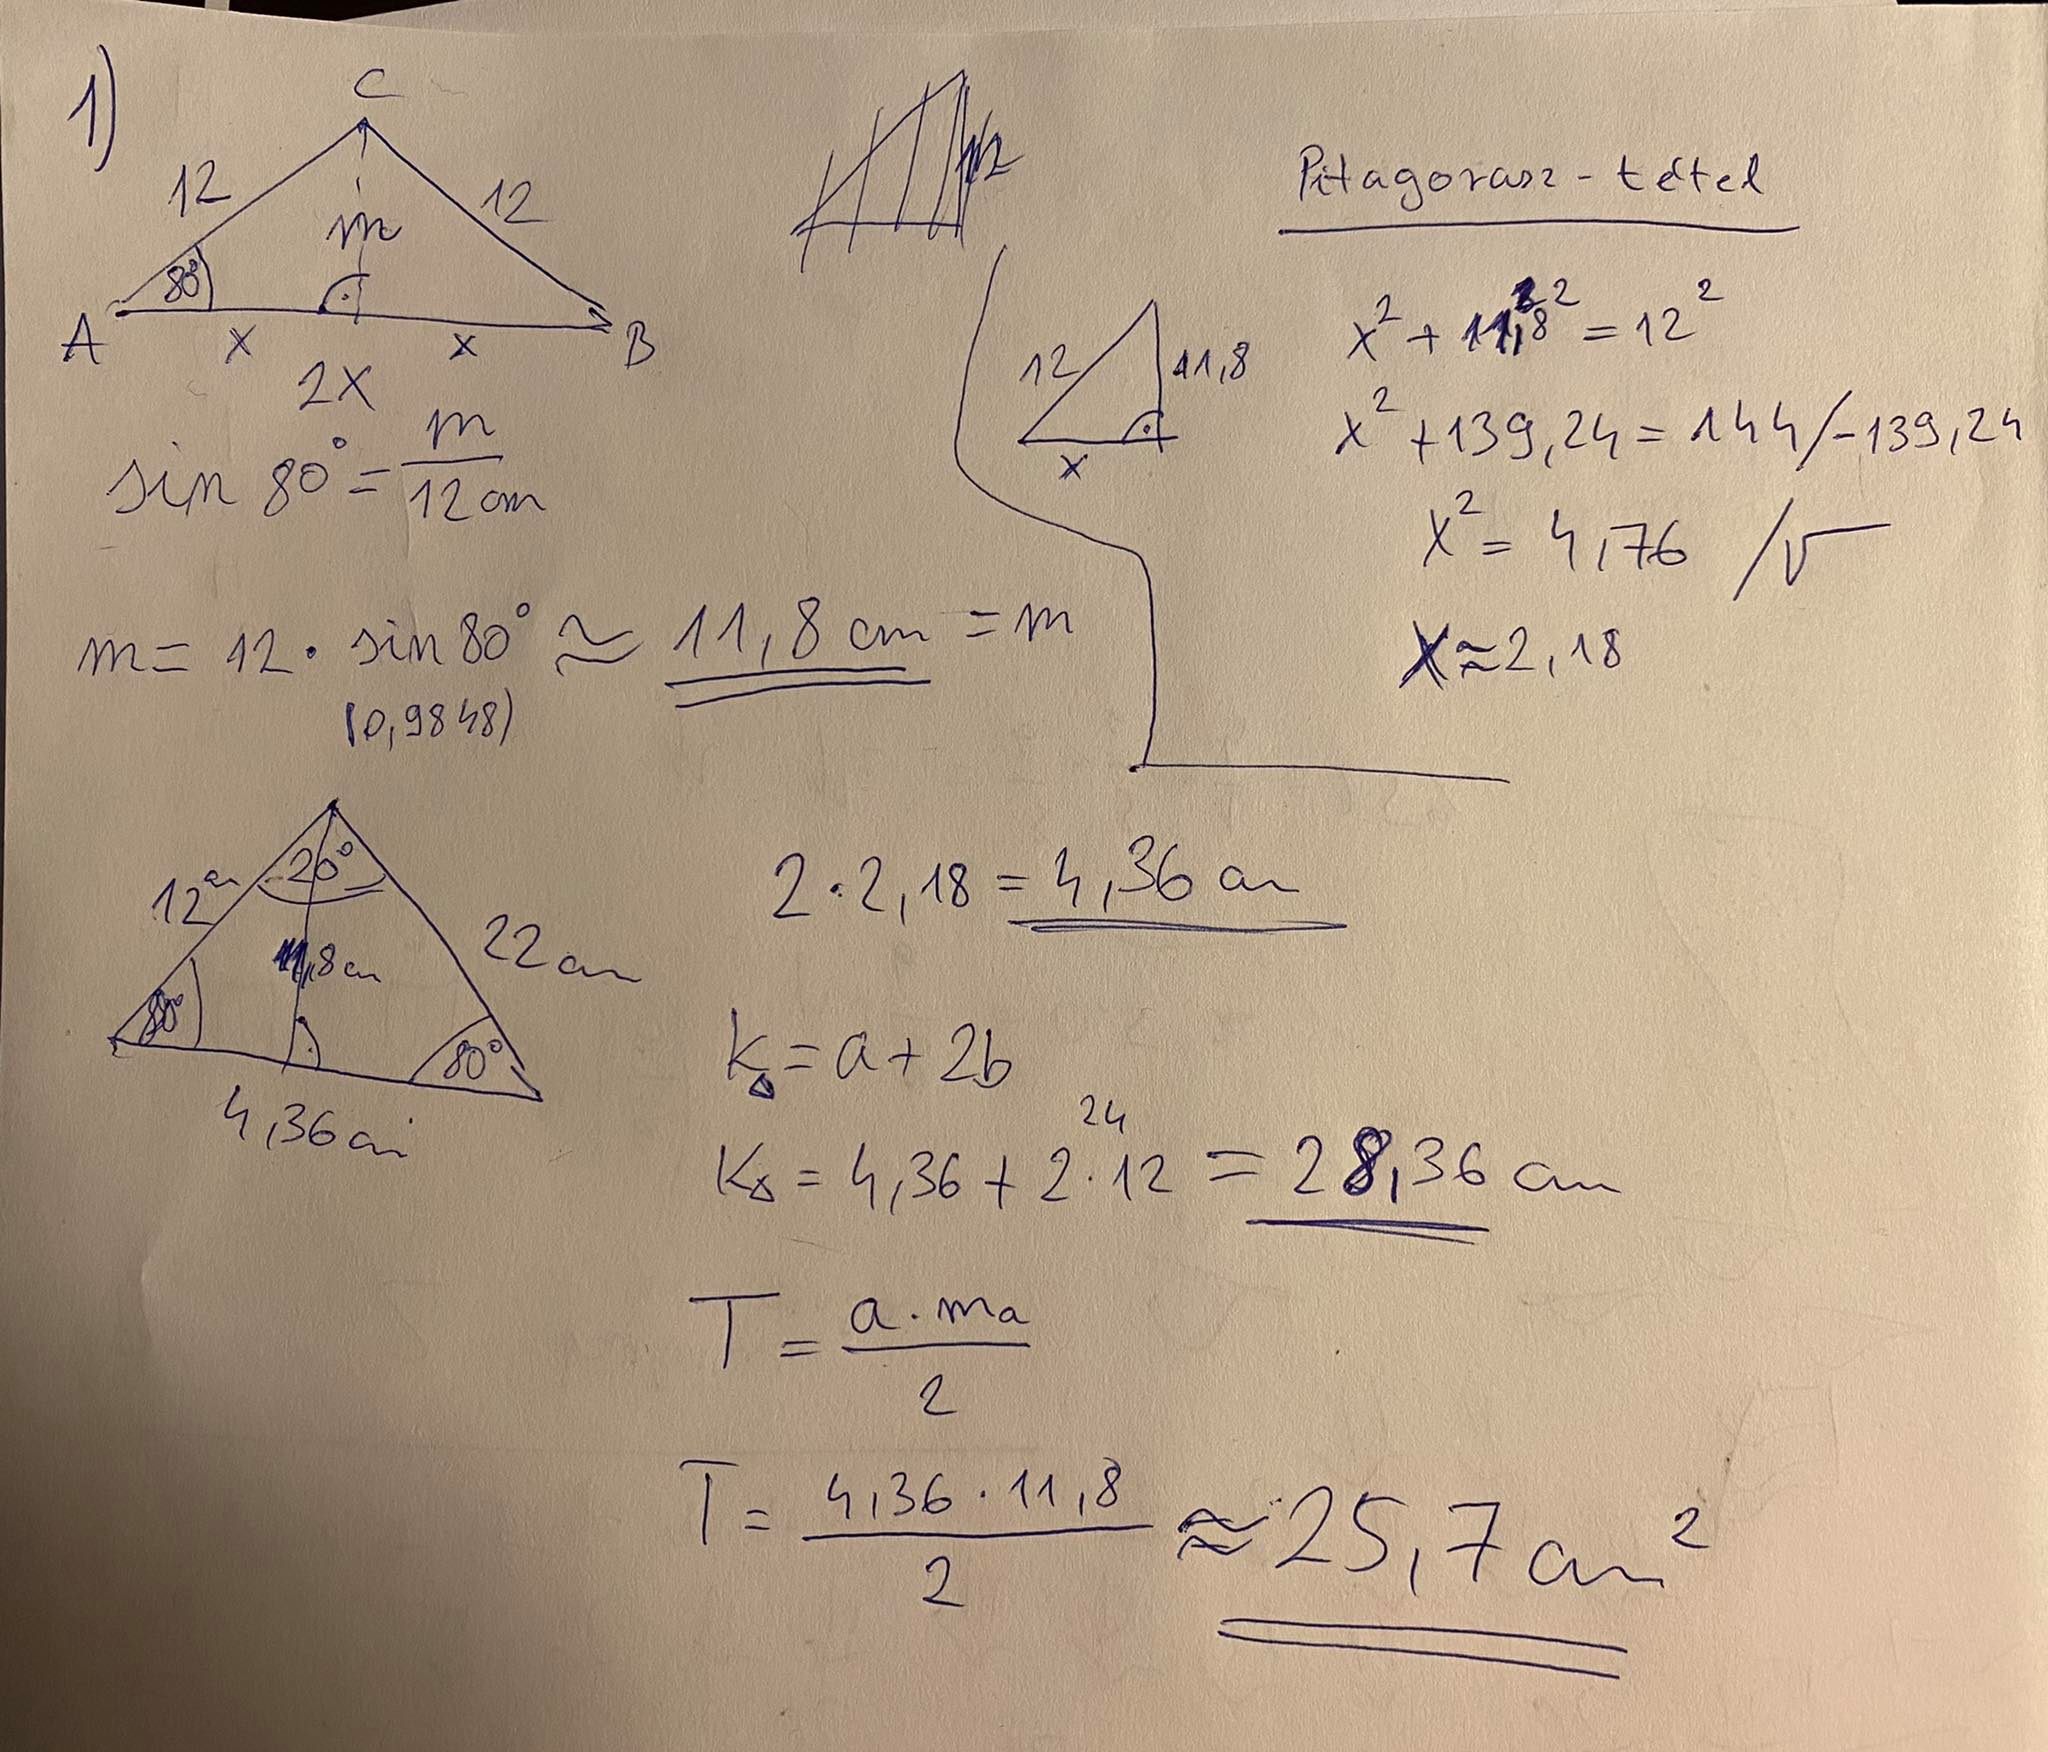 1)
C
12
12
m
80°
A
x
x
B
2x
sin 80° = m / 12 cm
m = 12 · sin 80° ≈ 11,8 cm = m
(0,9848)
12
11,8
x
Pitagorasz-tétel
x² + 11,8² = 12²
x² + 139,24 = 144 / -139,24
x² = 4,76 /√
x ≈ 2,18
20°
12 cm
11,8 cm
22 cm
80°
80°
4,36 cm
2 · 2,18 = 4,36 cm
K△ = a + 2b
24
K△ = 4,36 + 2 · 12 = 28,36 cm
T = a · ma / 2
T = 4,36 · 11,8 / 2 ≈ 25,7 cm²